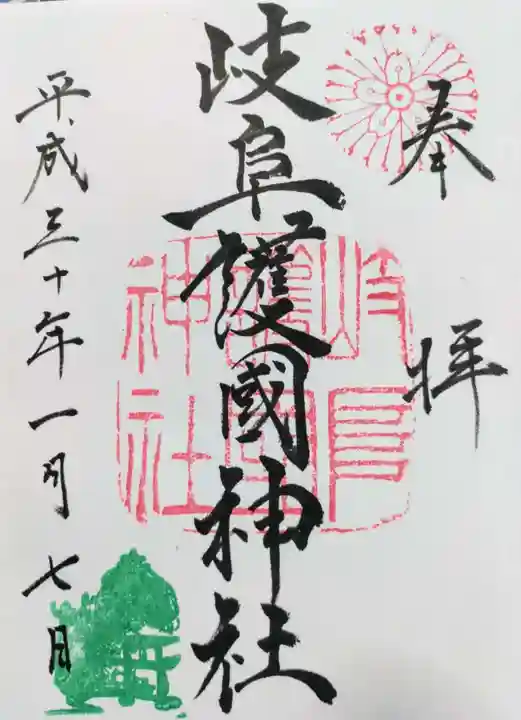 奉拝
岐阜護國神社
岐阜護國神社
平成三十年一月七日